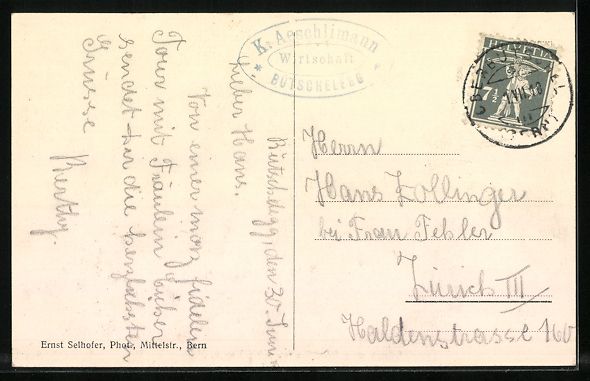 K. Aeschlimann
Wirtschaft
* BÜTSCHELEGG *
HELVETIA
7½
Bütschelegg, den 20. Juni
Lieber Hans.
Von einer ganz fidelen
Tour mit Fräulein
sendet dir die herzlichsten
Grüsse
Berthy.
Herrn
Hans Zollinger
bei Frau Fehler
Zürich III
Haldenstrasse 160
Ernst Selhofer, Phot., Mittelstr., Bern